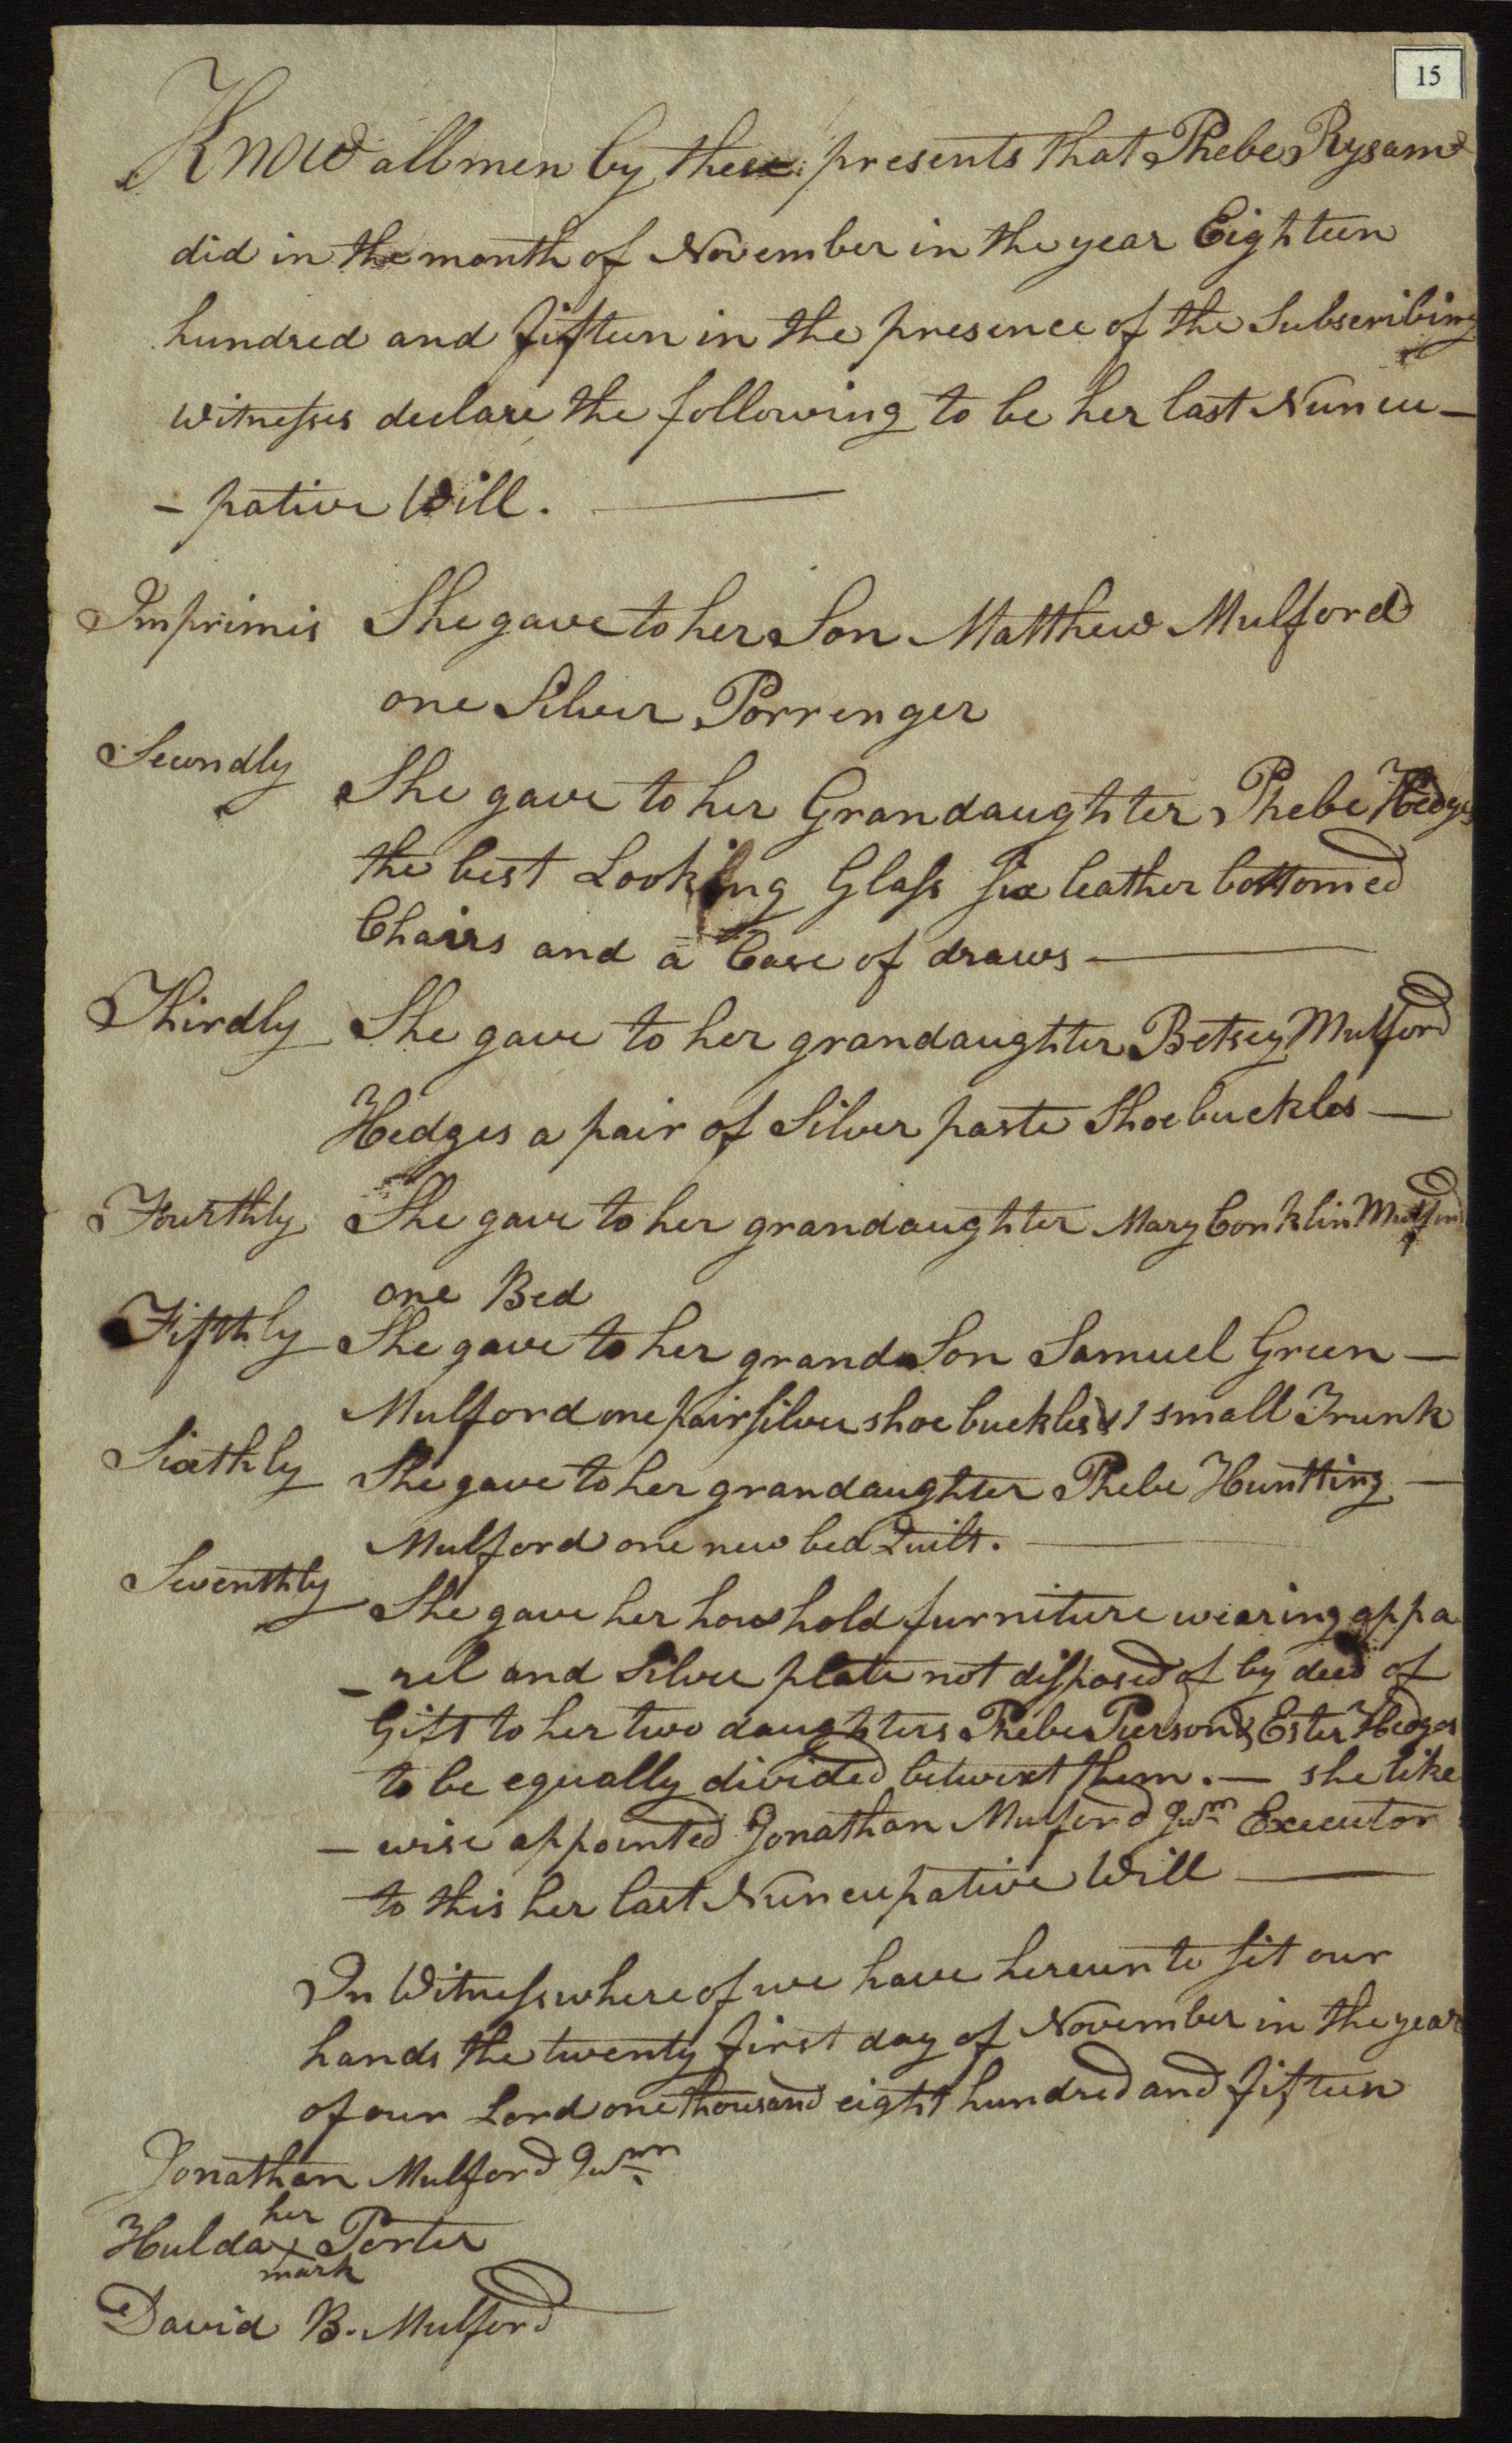 15
Know all men by these presents that Phebe Rysam
did in the month of November in the year Eighteen
hundred and fifteen in the presence of the Subscribing
witnesses declare the following to be her last Nuncu-
- pative Will.
Imprimis She gave to her Son Matthew Mulford
one Silver Porrenger
Secondly She gave to her Grandaughter Phebe Hedges
the best Looking Glass Six leather bottomed
Chairs and a Case of draws
Thirdly She gave to her grandaughter Betsey Mulford
Hedges a pair of Silver paste Shoebuckles
Fourthly She gave to her grandaughter Mary Conklin Mulford
one Bed
Fifthly She gave to her grandSon Samuel Green
Mulford one pair silver shoe buckles & 1 small Trunk
Sixthly She gave to her grandaughter Phebe Huntting
Mulford one new bed Quilt.
Seventhly She gave her houshold furniture wearing appa
- rel and Silver plate not disposed of by deed of
Gift to her two daughters Phebe Pierson & Ester Hedges
to be equally divided betwixt them. — she like
- wise appointed Jonathan Mulford Junr Executor
to this her last Nuncupative Will
In Witness whereof we have hereunto set our
hands the twenty first day of November in the year
of our Lord one thousand eight hundred and fifteen
Jonathan Mulford Junr
her
Hulda x Porter
mark
David B. Mulford